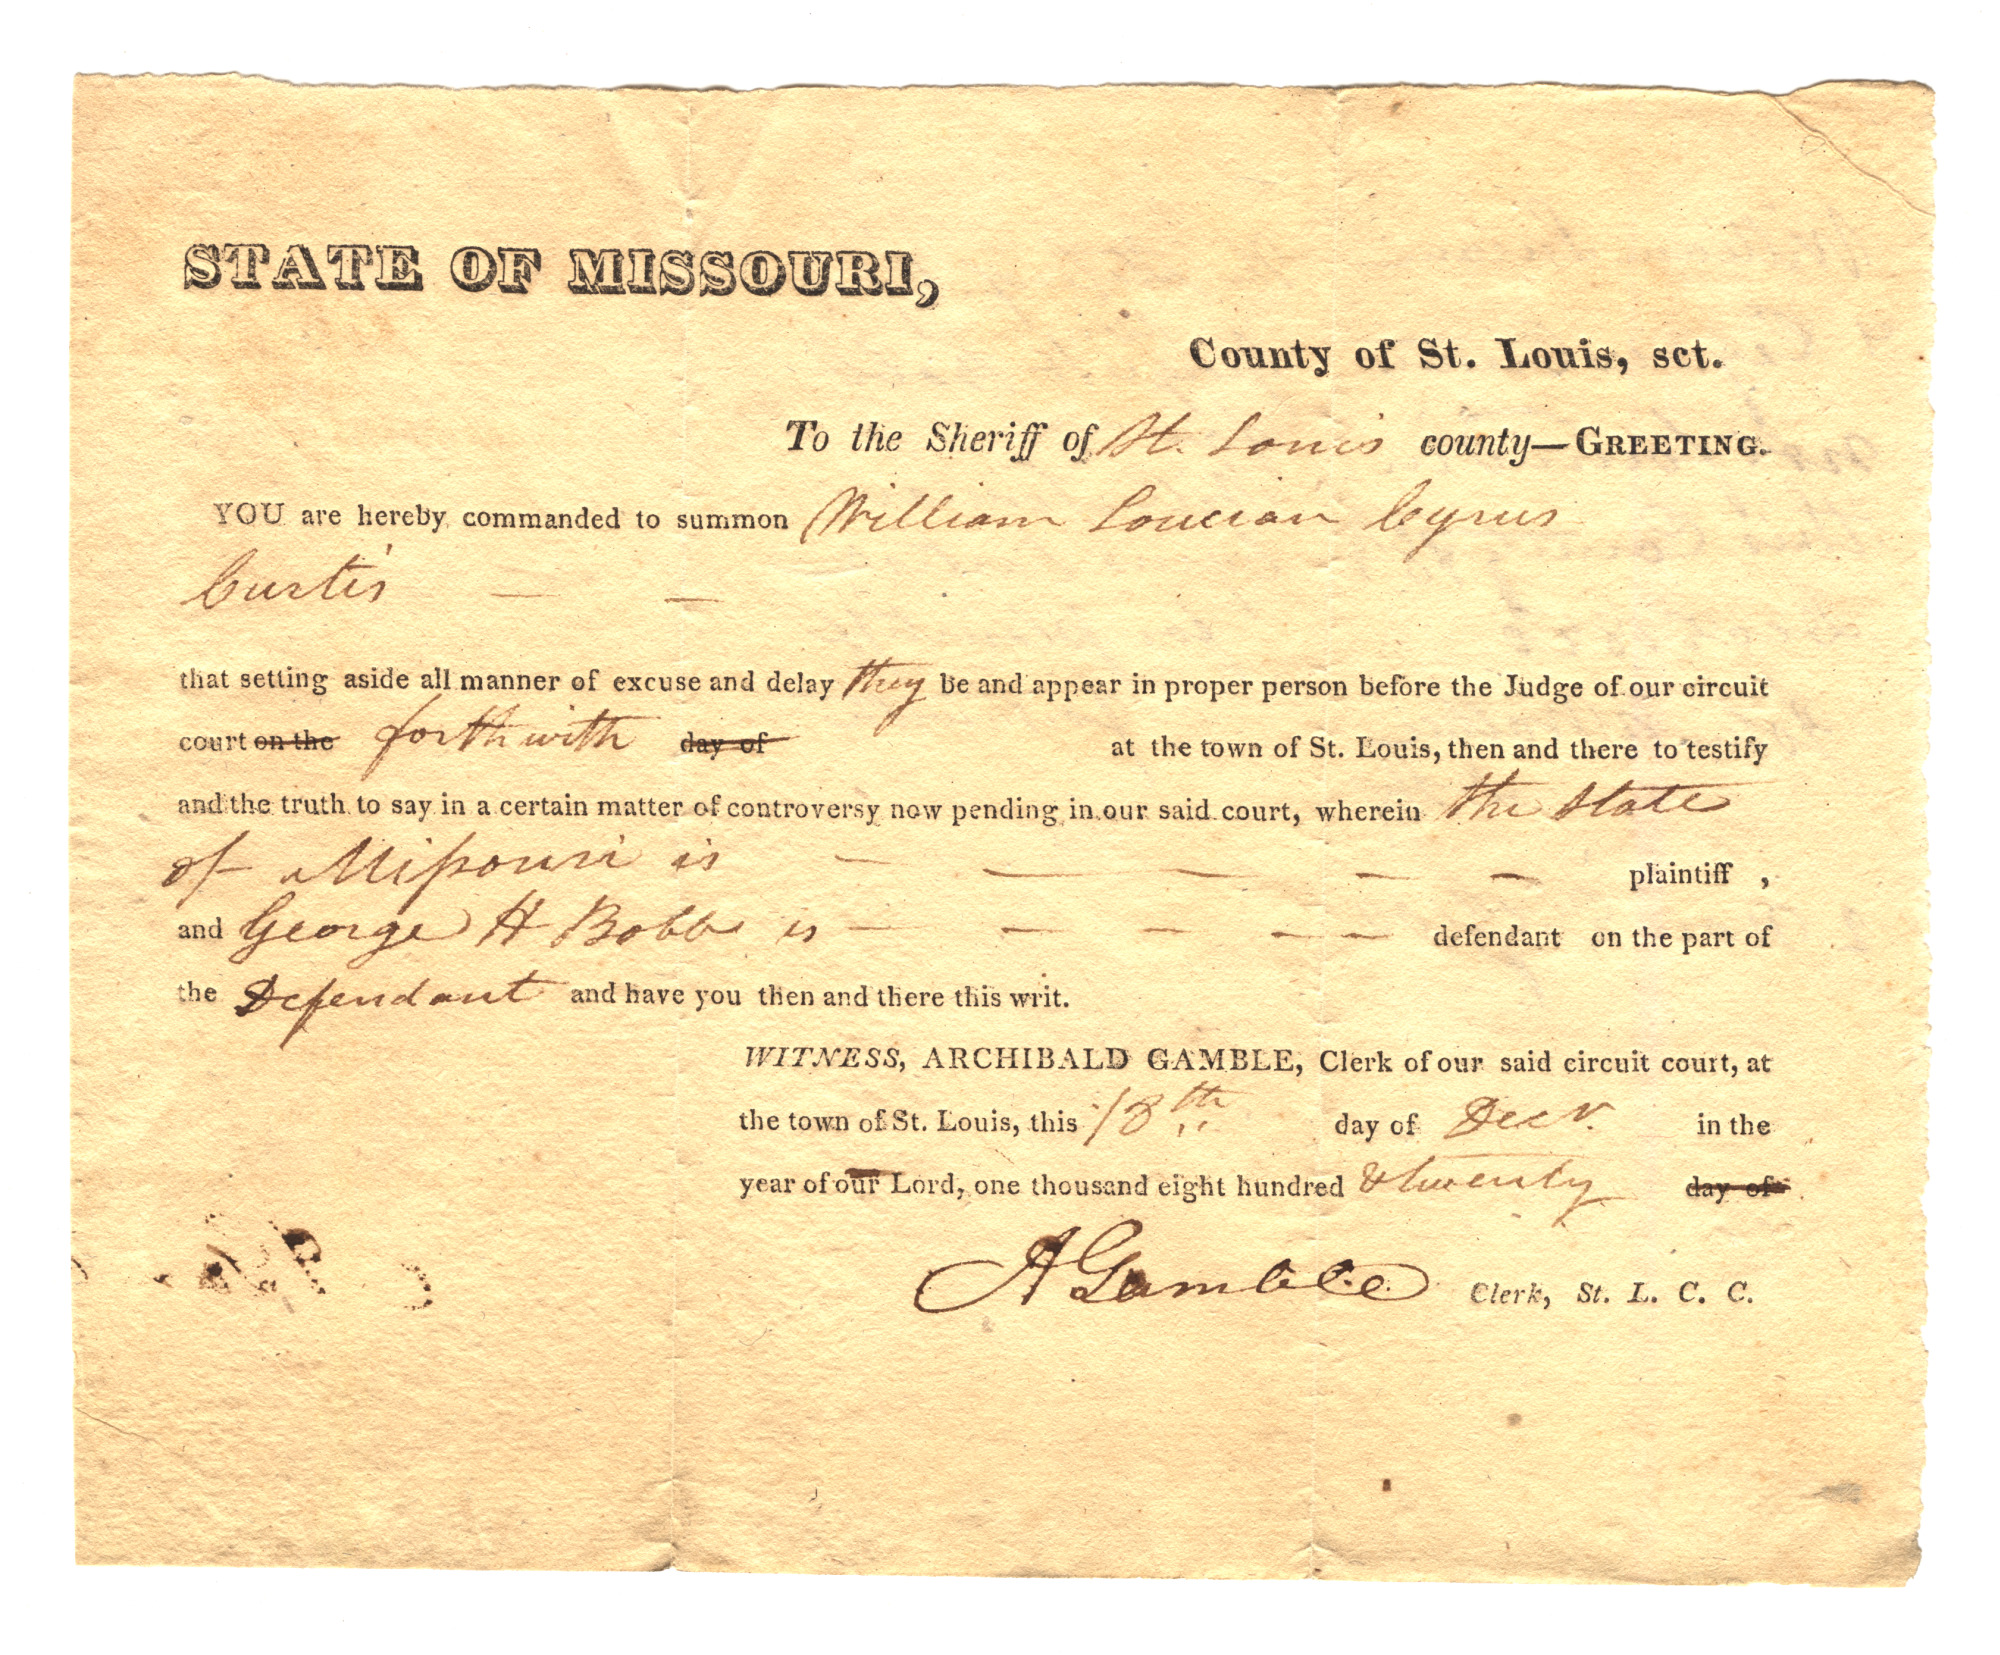 STATE OF MISSOURI,
County of St. Louis, sct.
To the Sheriff of St. Louis county—GREETING.
YOU are hereby commanded to summon William Loucian Cyrus
Curtis — —
that setting aside all manner of excuse and delay they be and appear in proper person before the Judge of our circuit
court on the forthwith day of at the town of St. Louis, then and there to testify
and the truth to say in a certain matter of controversy now pending in our said court, wherein the State
of Missouri is — — — — — plaintiff ,
and George H Bobb is — — — — — defendant on the part of
the Defendant and have you then and there this writ.
WITNESS, ARCHIBALD GAMBLE, Clerk of our said circuit court, at
the town of St. Louis, this 18th day of Decr. in the
year of our Lord, one thousand eight hundred & twenty day of
A Gamble Clerk, St. L. C. C.